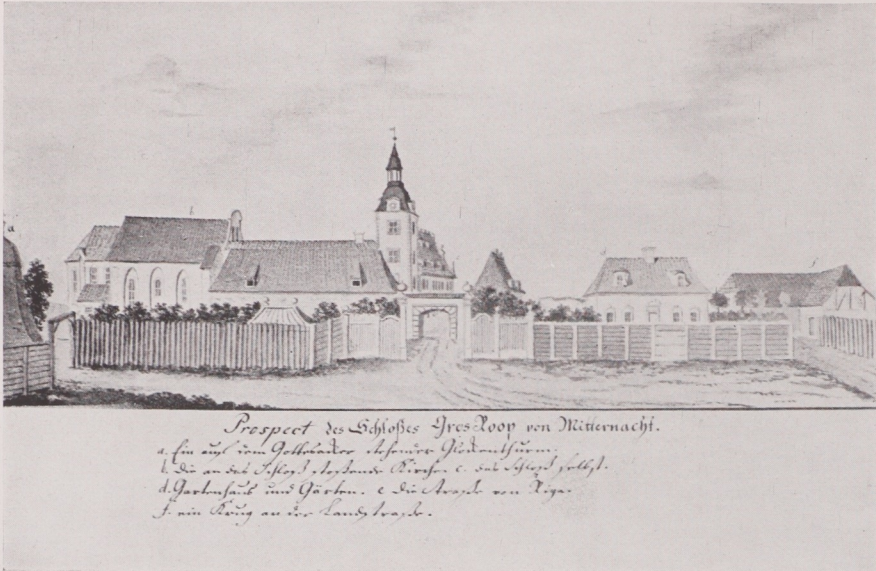 a
Prospect des Schloßes Gros Roop von Mitternacht.
a. Ein auf dem Gottesacker stehender Glockenthurm.
b. die an das Schloß stoßende Kirche. c. das Schloß selbst.
d. Gartenhaus und Gärten. e die Straße von Riga.
f. ein Krug an der Landstraße.